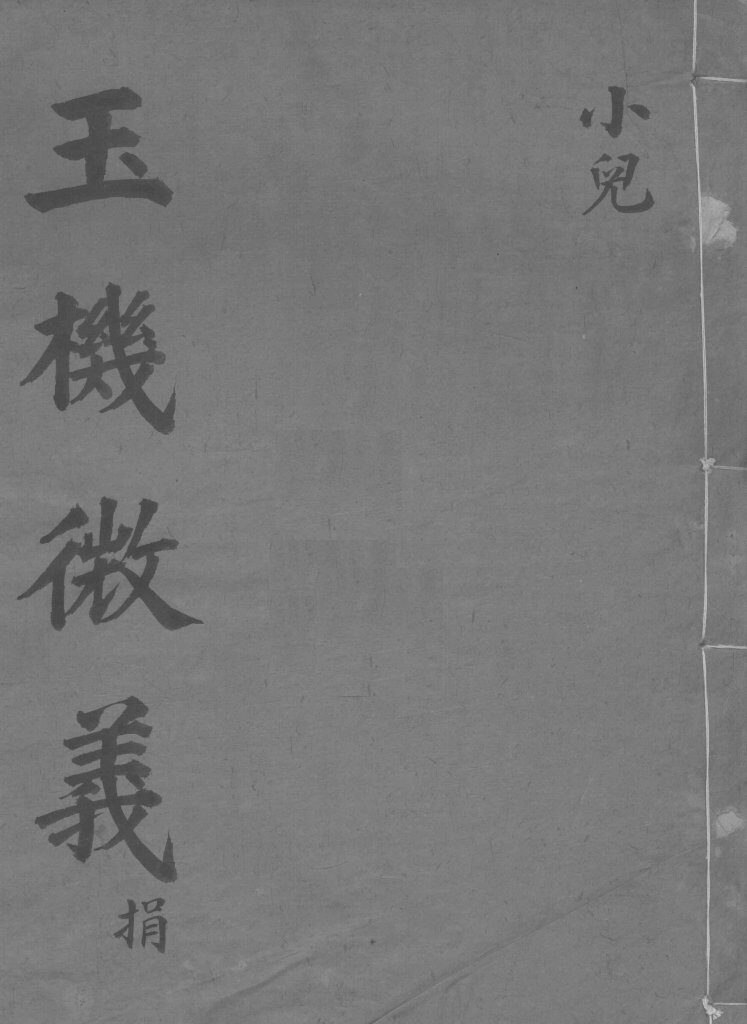 小兒
玉機微義
捐